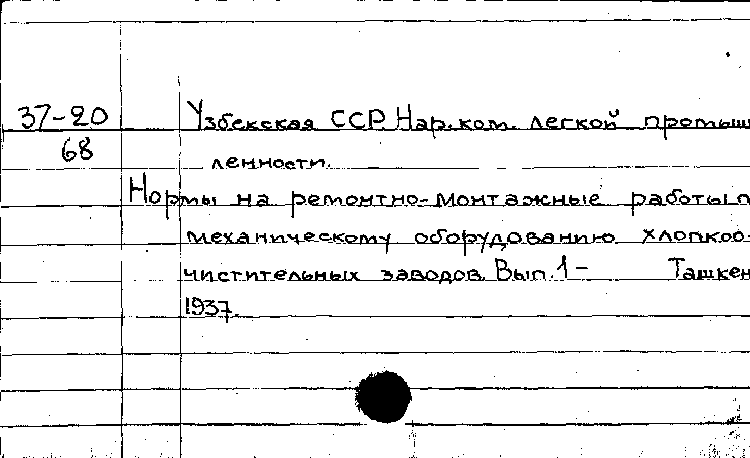 37-20
68
Узбекская ССР. Нар. ком. легкой промыш
ленности.
Нормы на ремонтно-монтажные работы п
механическому оборудованию хлопкоо-
чистительных заводов. Вып. 1-     Ташкен
1937.